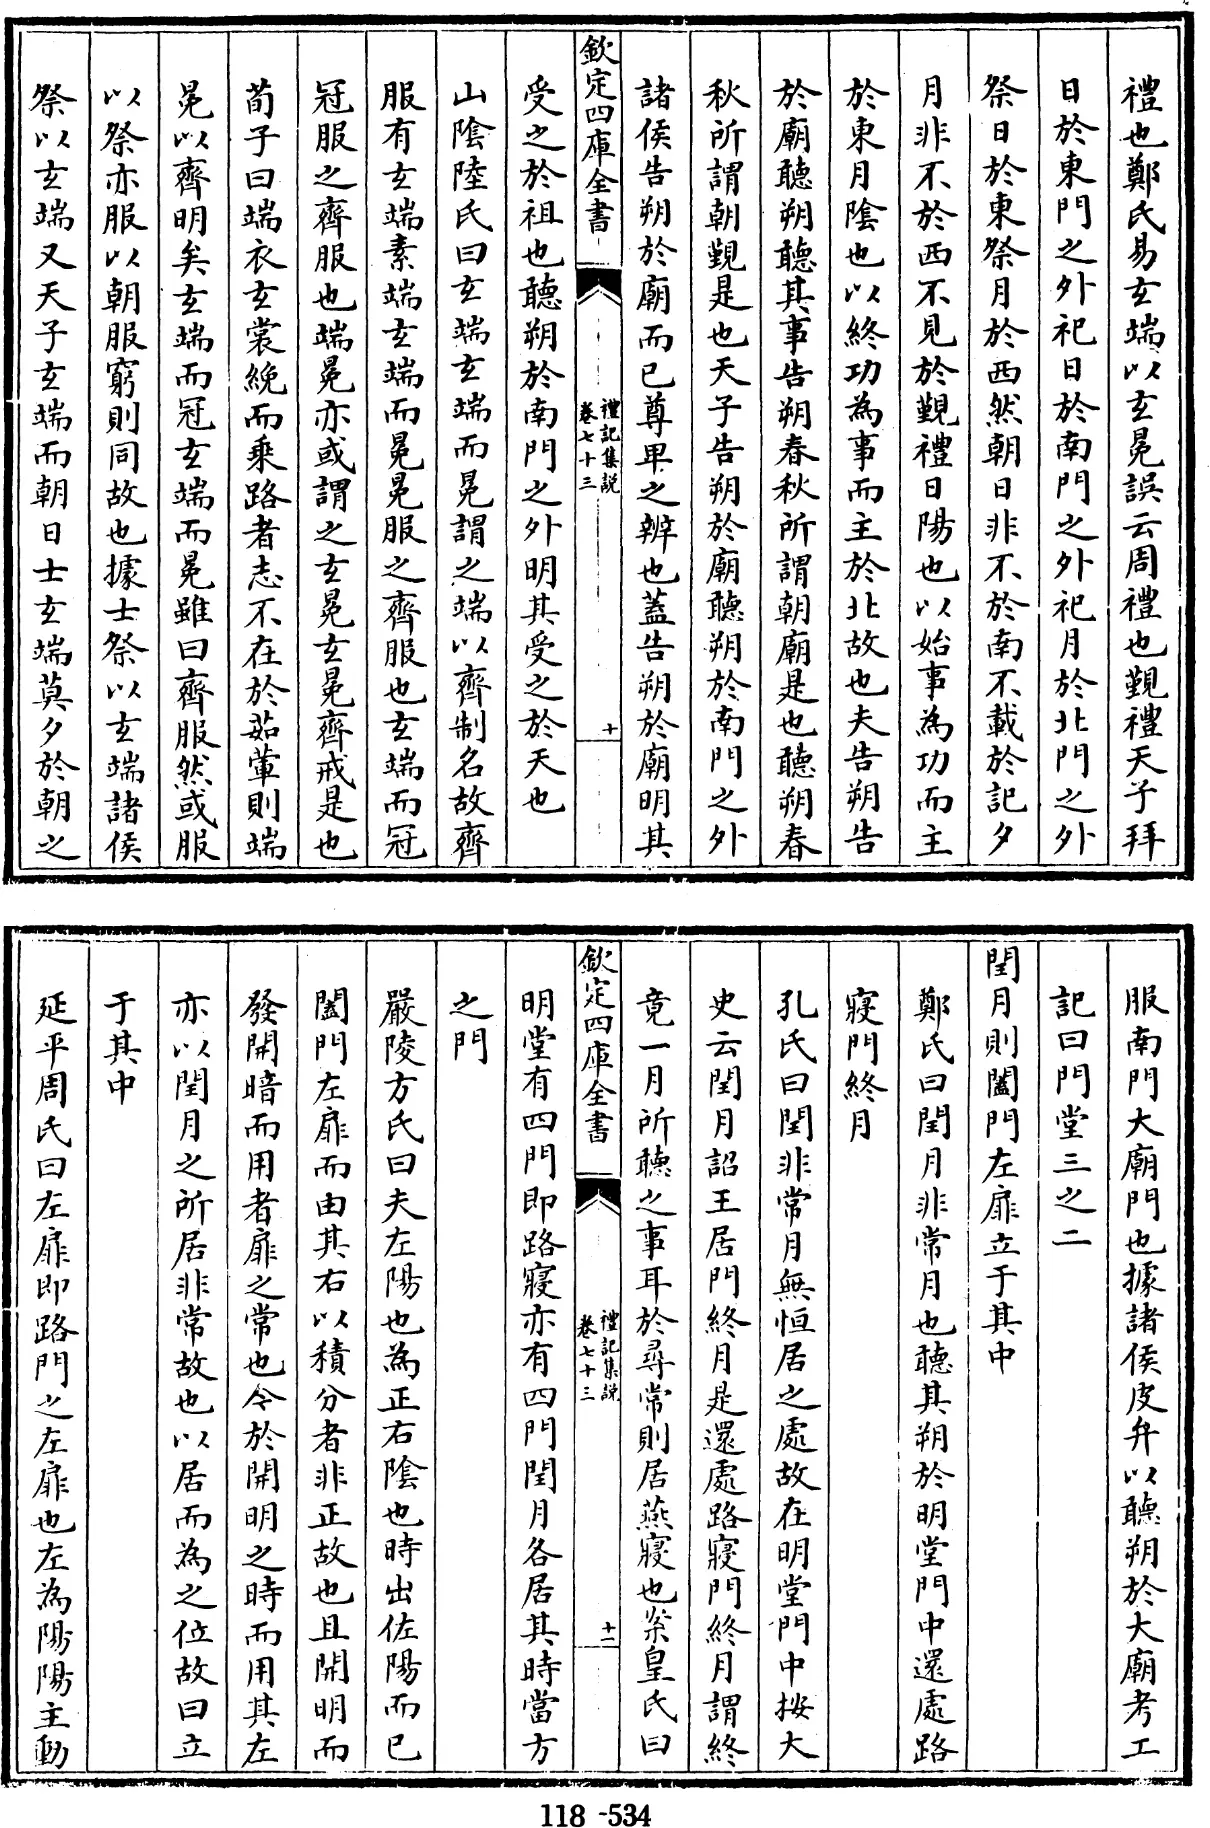 禮也鄭氏易玄端以玄冕誤云周禮也覲禮天子拜
日於東門之外祀日於南門之外祀月於北門之外
祭日於東祭月於西然朝日非不於南不載於記夕
月非不於西不見於覲禮日陽也以始事為功而主
於東月陰也以終功為事而主於北故也夫告朔告
於廟聽朔聽其事告朔春秋所謂朝廟是也聽朔春
秋所謂朝覲是也天子告朔於廟聽朔於南門之外
諸侯告朔於廟而已尊卑之辨也蓋告朔於廟明其
欽定四庫全書
禮記集説
卷七十三
十
受之於祖也聽朔於南門之外明其受之於天也
山陰陸氏曰玄端玄端而冕謂之端以齊制名故齊
服有玄端素端玄端而冕冕服之齊服也玄端而冠
冠服之齊服也端冕亦或謂之玄冕玄冕齊戒是也
荀子曰端衣玄裳絻而乘路者志不在於茹葷則端
冕以齊明矣玄端而冠玄端而冕雖曰齊服然或服
以祭亦服以朝服窮則同故也據士祭以玄端諸侯
祭以玄端又天子玄端而朝日士玄端莫夕於朝之
服南門大廟門也據諸侯皮弁以聽朔於大廟考工
記曰門堂三之二
閏月則闔門左扉立于其中
鄭氏曰閏月非常月也聽其朔於明堂門中還處路
寢門終月
孔氏曰閏非常月無恒居之處故在明堂門中按大
史云閏月詔王居門終月是還處路寢門終月謂終
竟一月所聽之事耳於尋常則居燕寢也案皇氏曰
欽定四庫全書
禮記集説
卷七十三
十一
明堂有四門即路寢亦有四門閏月各居其時當方
之門
嚴陵方氏曰夫左陽也為正右陰也時出佐陽而已
闔門左扉而由其右以積分者非正故也且開明而
發開暗而用者扉之常也今於開明之時而用其左
亦以閏月之所居非常故也以居而為之位故曰立
于其中
延平周氏曰左扉即路門之左扉也左為陽陽主動
118-534